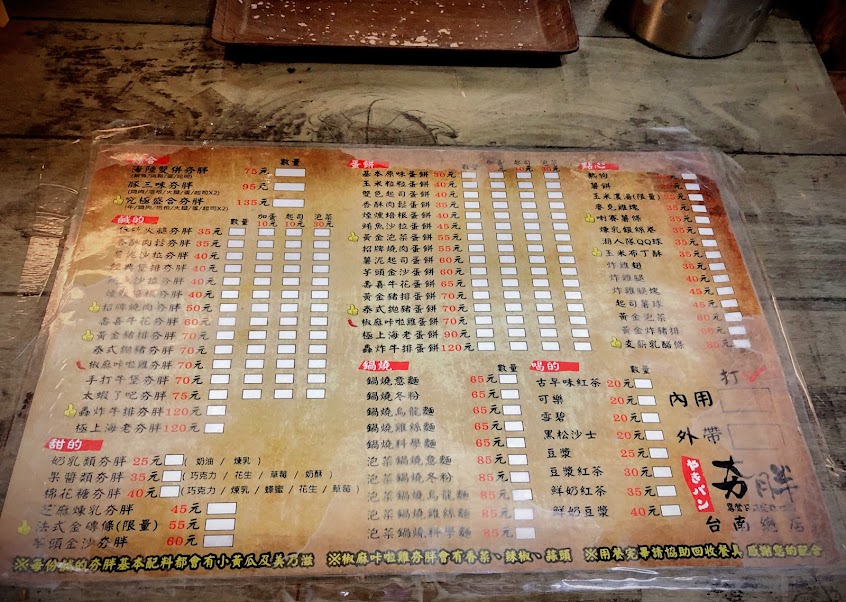 數量
海陸雙併夯胖 75元
豚三味夯胖 95元
究極盛合夯胖 135元
鹹的
數量 加蛋10元 起司10元 泡菜20元
火腿夯胖 35元
香酥肉鬆夯胖 35元
沙拉夯胖 40元
經典堡排夯胖 40元
沙拉夯胖 40元
夯胖 40元
招牌燒肉夯胖 50元
壽喜牛花夯胖 60元
黃金豬排夯胖 70元
泰式拋豬夯胖 70元
椒麻咔啦雞夯胖 70元
手打牛堡夯胖 70元
太蝦了吧夯胖 75元
轟炸牛排夯胖 120元
極上海老夯胖 120元
甜的
奶乳類夯胖 25元 ( 奶油 / 煉乳 )
果醬類夯胖 35元 ( 巧克力 / 花生 / 草莓 / 奶酥 )
棉花糖夯胖 40元 ( 巧克力 / 煉乳 / 蜂蜜 / 花生 / 草莓 )
芝麻煉乳夯胖 45元
法式金磚條(限量) 55元
芋頭金沙夯胖 60元
蛋餅
數量 加蛋 起司 泡菜
基本原味蛋餅 30元
玉米粒粒蛋餅 40元
雙色起司蛋餅 40元
香酥肉鬆蛋餅 40元
煙燻培根蛋餅 40元
鮪魚沙拉蛋餅 45元
黃金泡菜蛋餅 55元
招牌燒肉蛋餅 55元
薯泥起司蛋餅 60元
芋頭金沙蛋餅 60元
壽喜牛花蛋餅 65元
黃金豬排蛋餅 70元
泰式拋豬蛋餅 70元
椒麻咔啦雞蛋餅 70元
極上海老蛋餅 90元
轟炸牛排蛋餅 120元
鍋燒
數量
鍋燒意麵 65元
鍋燒冬粉 65元
鍋燒烏龍麵 65元
鍋燒雞絲麵 65元
鍋燒科學麵 65元
泡菜鍋燒意麵 85元
泡菜鍋燒冬粉 85元
泡菜鍋燒烏龍麵 85元
泡菜鍋燒雞絲麵 85元
泡菜鍋燒科學麵 85元
點心
數量
熱狗
薯餅
玉米濃湯(限量)
麥克雞塊
喇賽薯條
煉乳銀絲卷 35元
湖人隊QQ球 35元
玉米布丁酥 35元
炸雞翅 35元
炸雞腿
炸雞塊
起司薯球
黃金泡菜
黃金炸豬排
麥蔴乳酪條
喝的
數量
古早味紅茶 20元
可樂 20元
雪碧 20元
黑松沙士 20元
豆漿 25元
豆漿紅茶 30元
鮮奶紅茶 35元
鮮奶豆漿 40元
打
內用
外帶
やきパン
夯胖
台南總店
※每份鹹的夯胖基本配料都會有小黃瓜及美乃滋 ※椒麻咔啦雞夯胖會有香菜、辣椒、蒜頭 ※用餐完畢請協助回收餐具 感謝您的配合